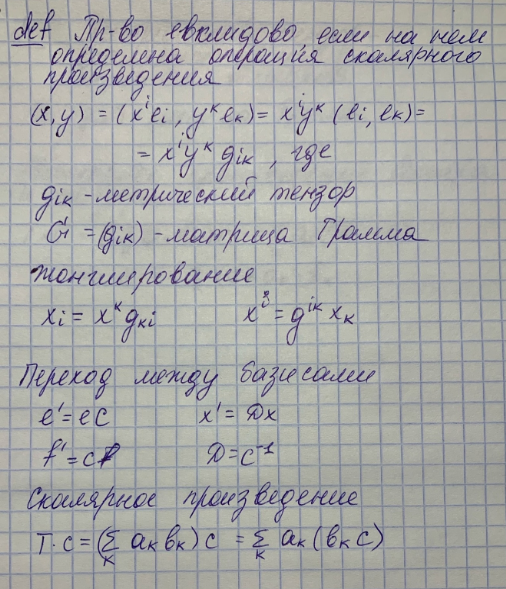 def Пр-во евклидово если на нем
определена операция скалярного
произведения
(x,y) = (xⁱeᵢ, yᵏeₖ) = xⁱyᵏ (eᵢ, eₖ) =
= xⁱyᵏ gᵢₖ , где
gᵢₖ - метрический тензор
G = (gᵢₖ) - матрица Грамма
Жонглирование
xᵢ = xᵏ gₖᵢ xⁱ = gⁱᵏ xₖ
Переход между базисами
e' = eC x' = Дx
f' = cf Д = C⁻¹
Скалярное произведение
T·c = (∑ₖ aₖbₖ) c = ∑ₖ aₖ(bₖ c)